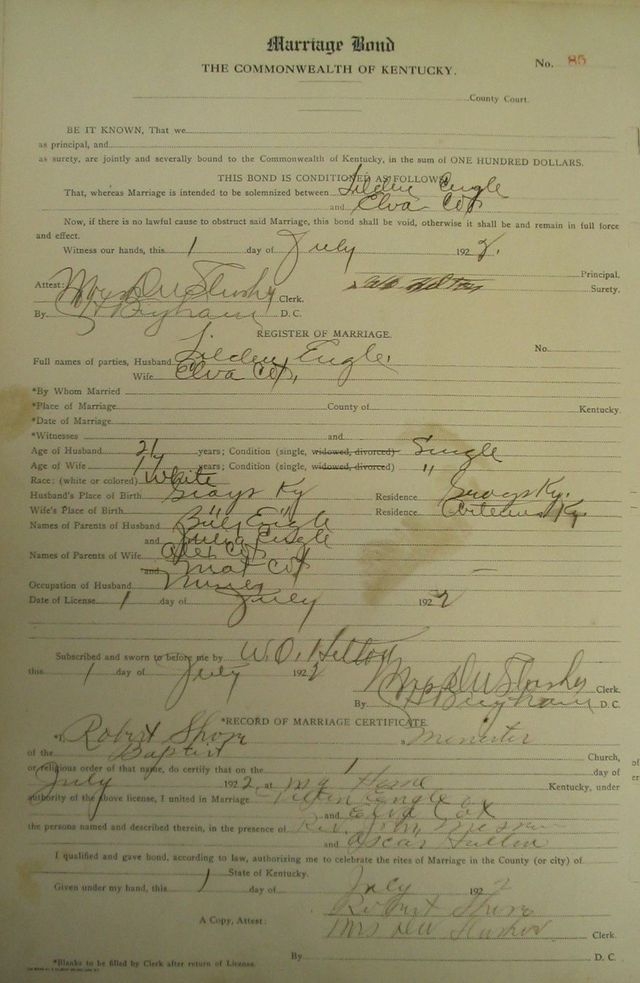 Marriage Bond
THE COMMONWEALTH OF KENTUCKY.
No. 85
County Court.
BE IT KNOWN, That we
as principal, and
as surety, are jointly and severally bound to the Commonwealth of Kentucky, in the sum of ONE HUNDRED DOLLARS.
THIS BOND IS CONDITIONED AS FOLLOWS:
That, whereas Marriage is intended to be solemnized between Tilden Engle
and Elva Cox
Now, if there is no lawful cause to obstruct said Marriage, this bond shall be void, otherwise it shall be and remain in full force
and effect.
Witness our hands, this 1 day of July 1922.
Principal.
Attest: Mrs D W Slusher Clerk. Surety.
By H Bingham D. C.
REGISTER OF MARRIAGE.
No.
Full names of parties, Husband Tilden Engle.
Wife Elva Cox,
*By Whom Married
*Place of Marriage County of Kentucky.
*Date of Marriage
*Witnesses and
Age of Husband 21 years; Condition (single, widowed, divorced) Single
Age of Wife 17 years; Condition (single, widowed, divorced) "
Race: (white or colored) White
Husband's Place of Birth Grays Ky Residence Grays Ky.
Wife's Place of Birth " " Residence Artemus Ky
Names of Parents of Husband Billy Engle
and Engle
Names of Parents of Wife Cox
and Cox
Occupation of Husband Miner
Date of License 1 day of July 1922
Subscribed and sworn to before me by W. O. Helton
this 1 day of July 1922
Mrs D W Slusher Clerk.
By H Bingham D. C.
*RECORD OF MARRIAGE CERTIFICATE.
*I, Robert Shore a Minister
of the Baptist Church,
or religious order of that name, do certify that on the 1 day of
July 1922, at my Home Kentucky, under
authority of the above license, I united in Marriage Engle
and Elva Cox
the persons named and described therein, in the presence of Rev. Jim
and Oscar
I qualified and gave bond, according to law, authorizing me to celebrate the rites of Marriage in the County (or city) of
State of Kentucky.
Given under my hand, this 1 day of July 1922
Robert Shore
A Copy, Attest: Mrs D W Slusher Clerk.
By D. C.
*Blanks to be filled by Clerk after return of License.